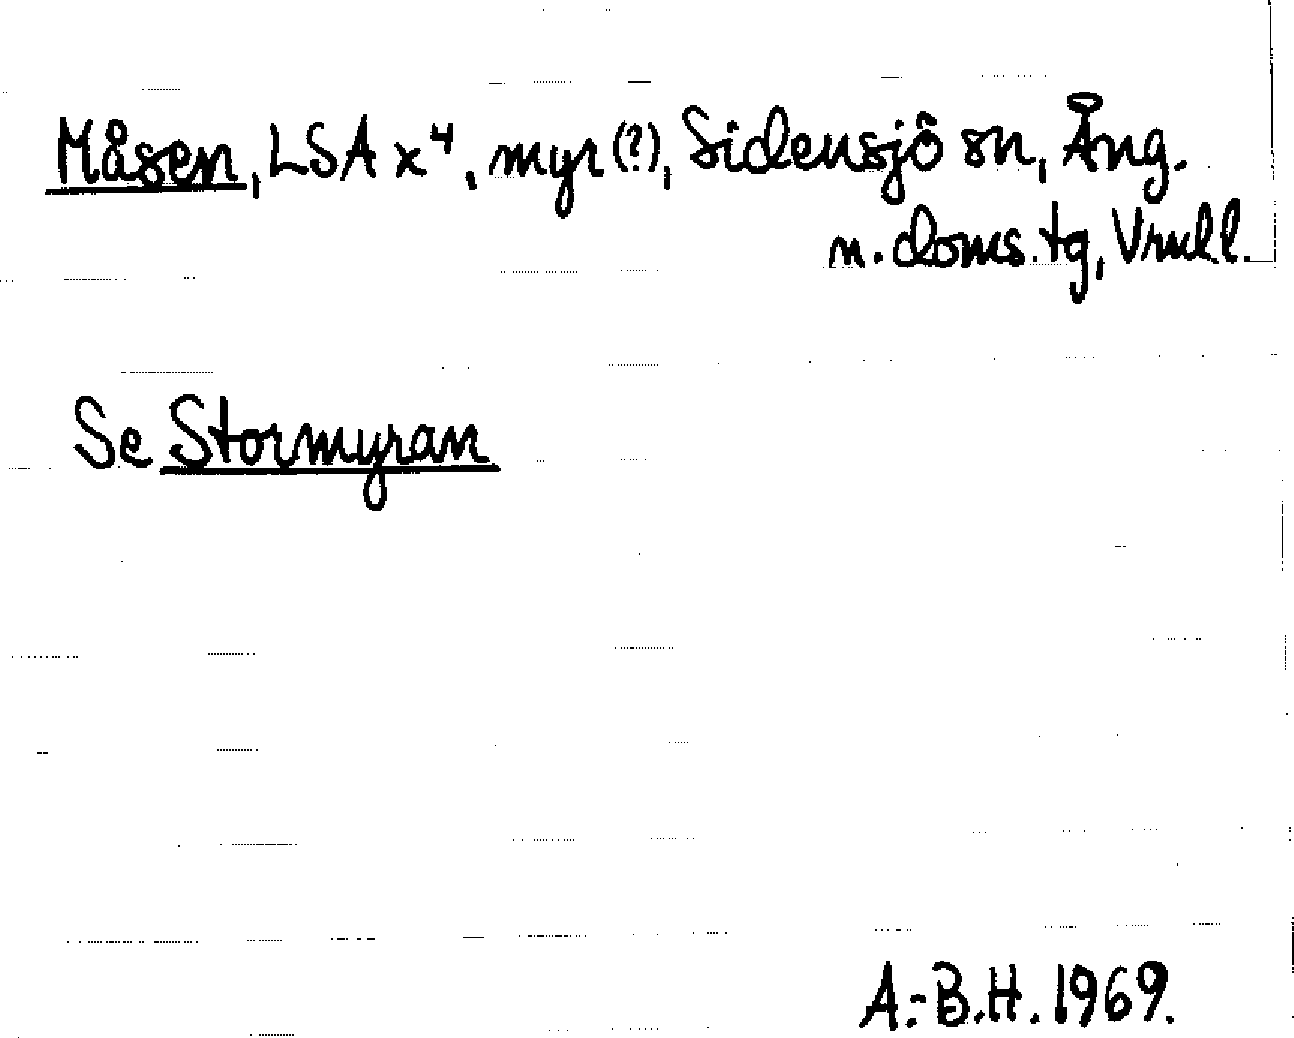 Måsen, LSA x⁴, myr (?), Sidensjö sn, Ång.
n. doms. tg, Vrnll.
Se Stormyran
A.-B.H. 1969.